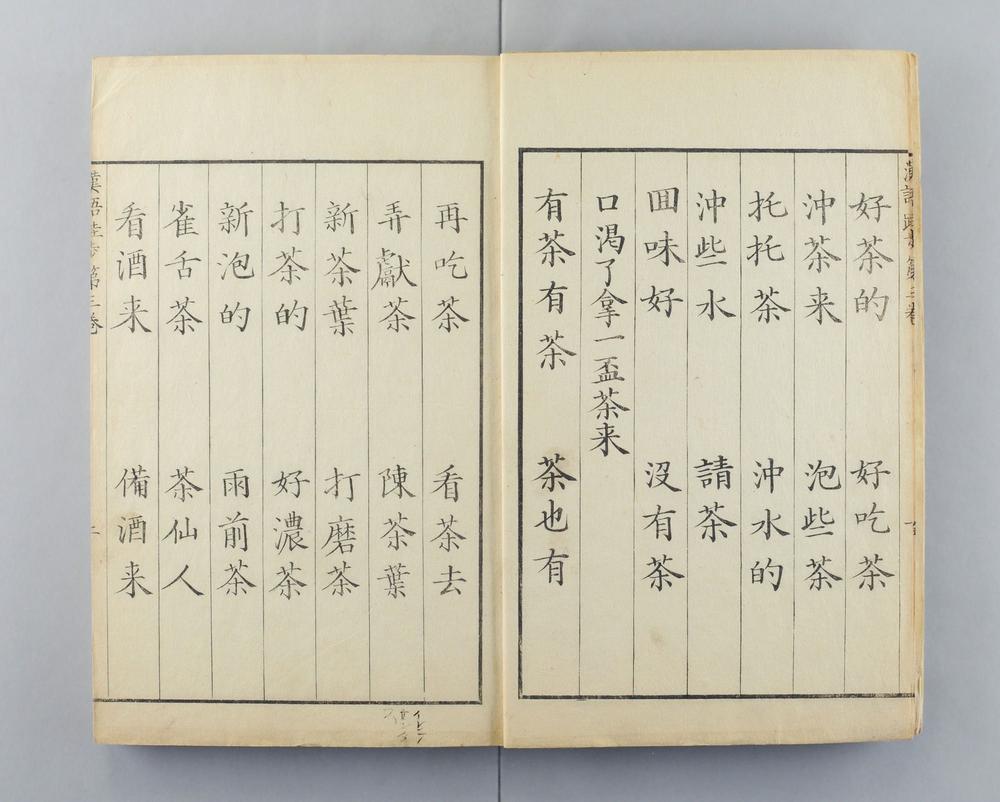 好茶的 好吃茶
沖茶来 泡些茶
托托茶 沖水的
沖些水 請茶
囬味好 沒有茶
口渴了拿一盃茶来
有茶有茶 茶也有
再吃茶 看茶去
弄獻茶 陳茶葉
新茶葉 打磨茶
打茶的 好濃茶
新泡的 雨前茶
雀舌茶 茶仙人
看酒来 備酒来